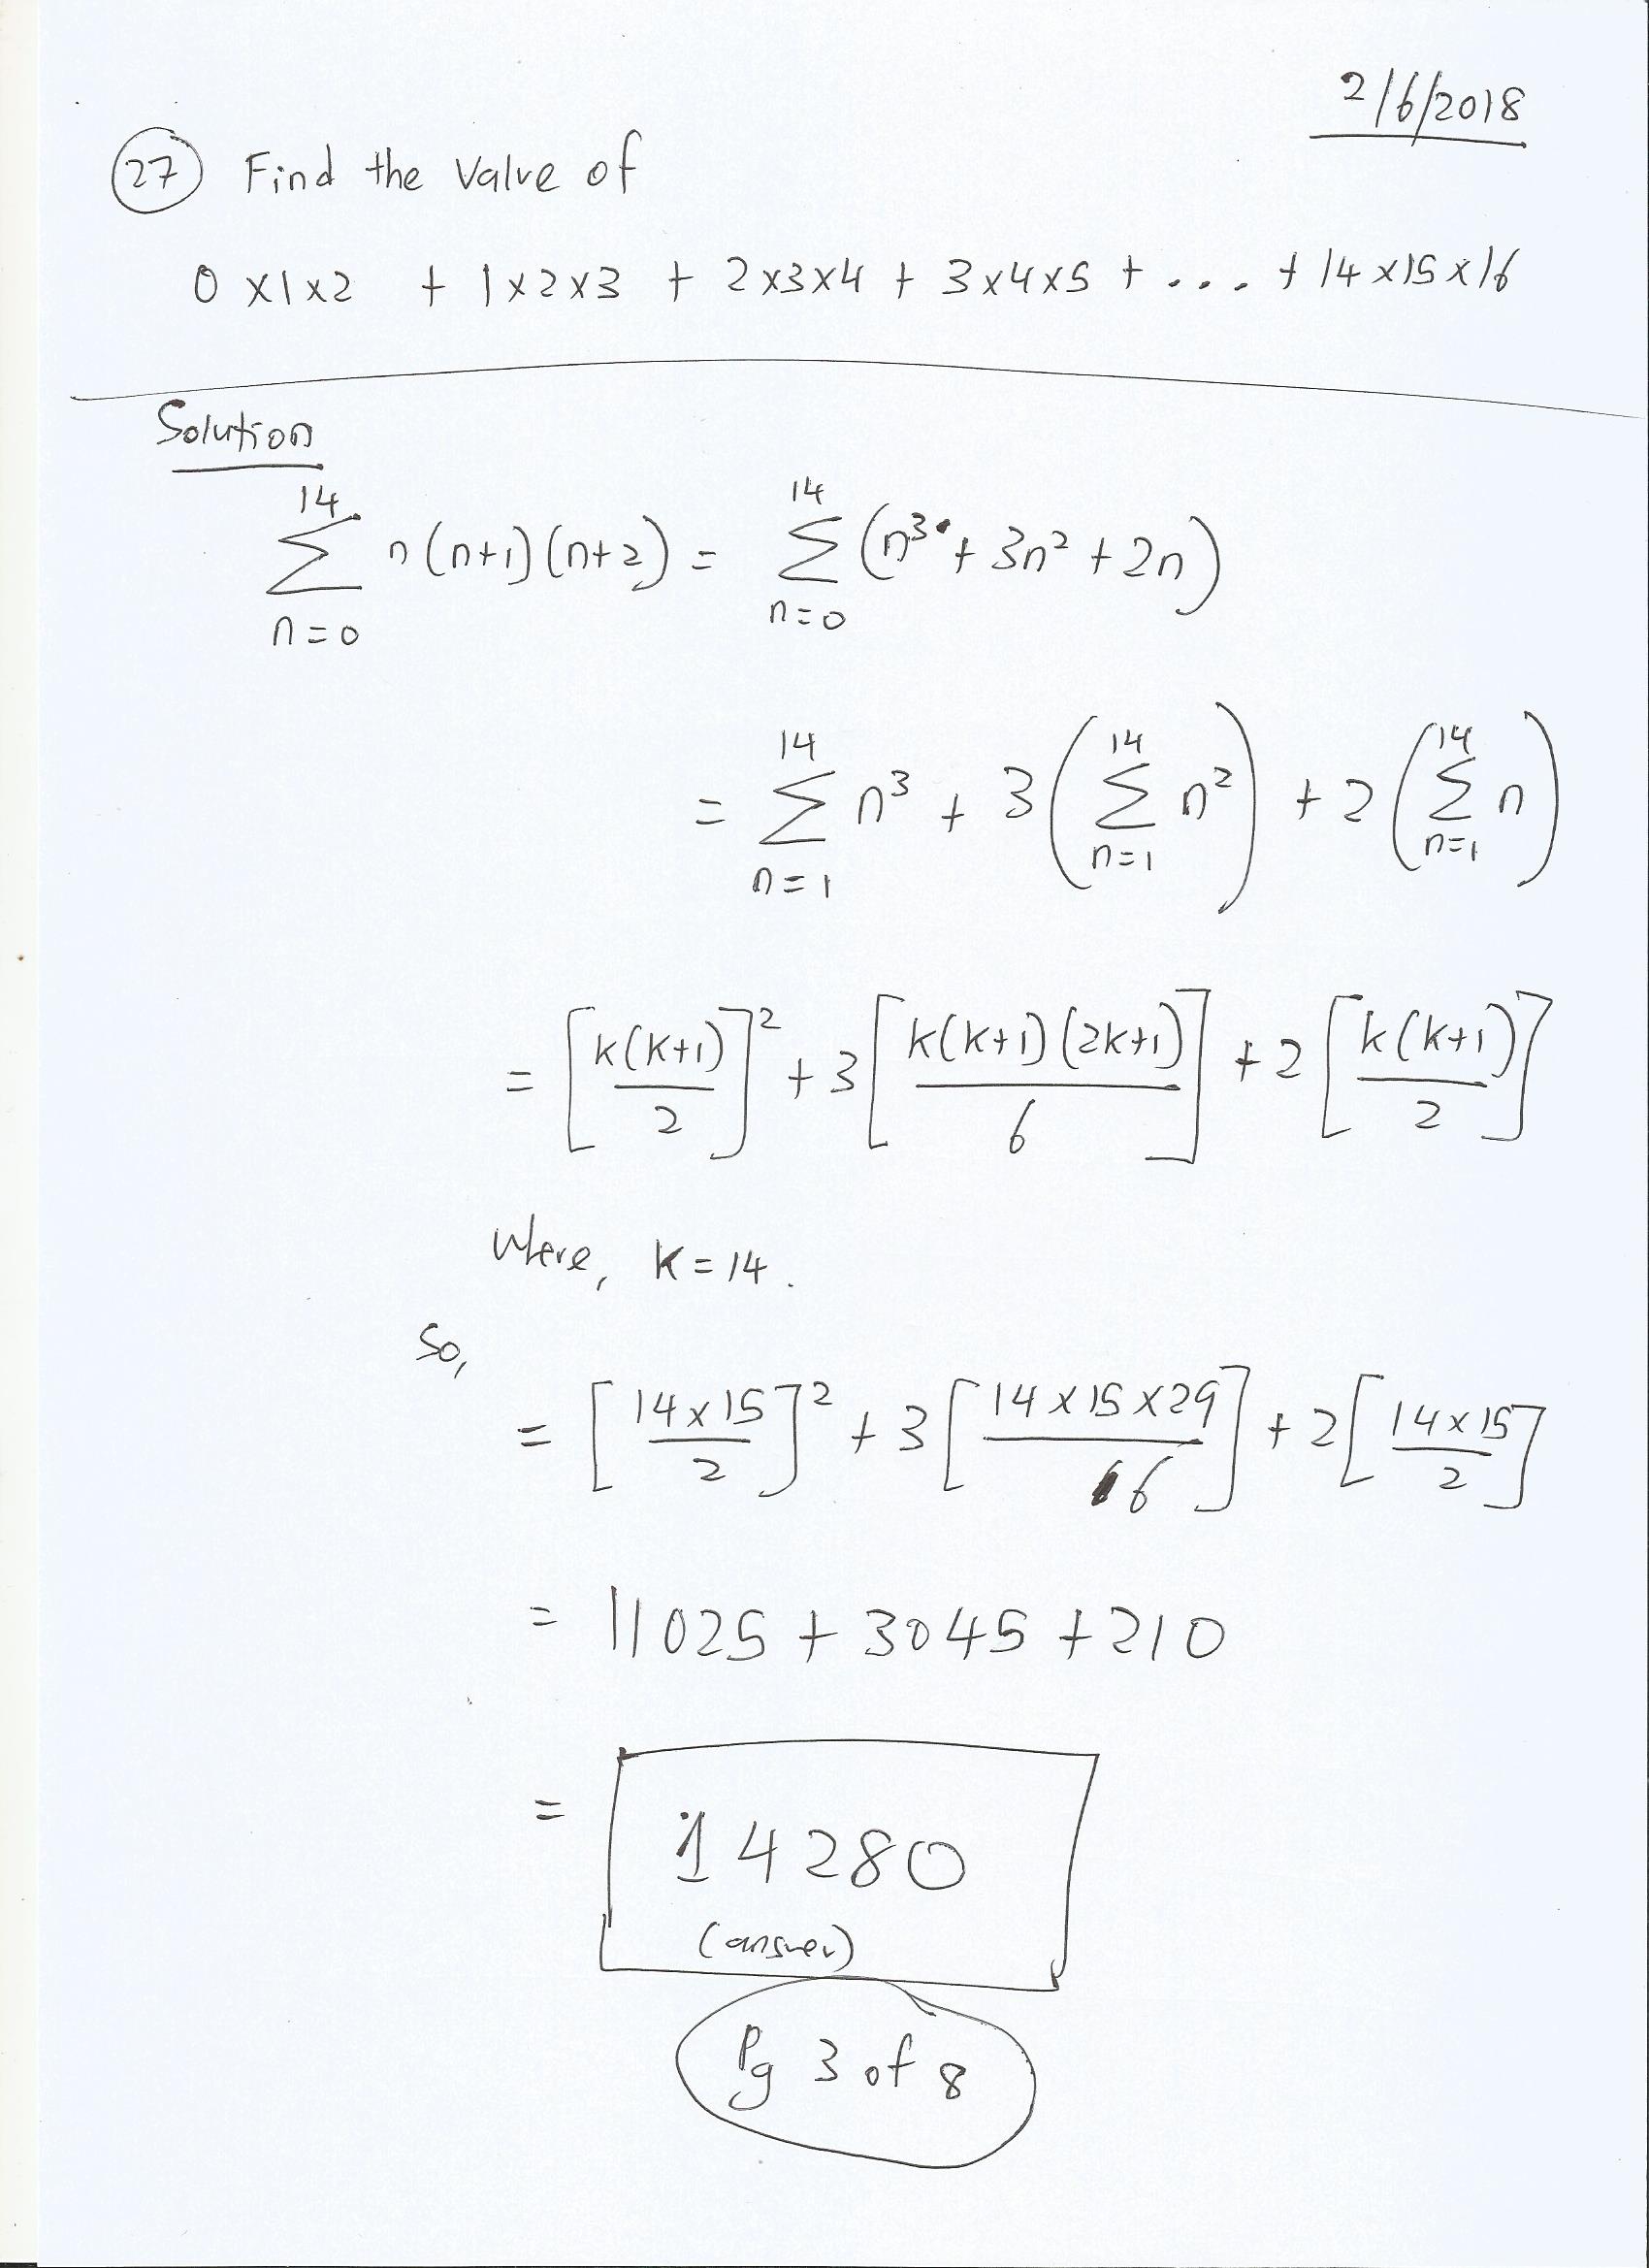 2/6/2018
27 Find the value of
0 x 1 x 2 + 1 x 2 x 3 + 2 x 3 x 4 + 3 x 4 x 5 + ... + 14 x 15 x 16
Solution
\sum_{n=0}^{14} n(n+1)(n+2) = \sum_{n=0}^{14} (n^3 + 3n^2 + 2n)
= \sum_{n=1}^{14} n^3 + 3(\sum_{n=1}^{14} n^2) + 2(\sum_{n=1}^{14} n)
= [\frac{k(k+1)}{2}]^2 + 3[\frac{k(k+1)(2k+1)}{6}] + 2[\frac{k(k+1)}{2}]
where, k = 14.
So,
= [\frac{14 x 15}{2}]^2 + 3[\frac{14 x 15 x 29}{6}] + 2[\frac{14 x 15}{2}]
= 11025 + 3045 + 210
= 14280
(answer)
Pg 3 of 8